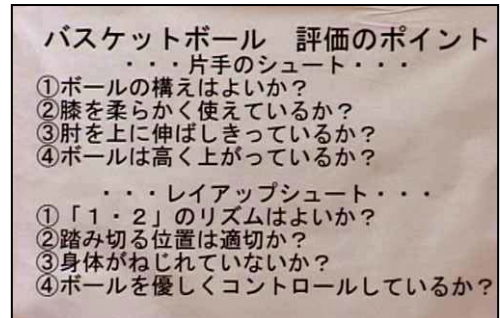 バスケットボール　評価のポイント
・・・片手のシュート・・・
①ボールの構えはよいか？
②膝を柔らかく使えているか？
③肘を上に伸ばしきっているか？
④ボールは高く上がっているか？
・・・レイアップシュート・・・
①「１・２」のリズムはよいか？
②踏み切る位置は適切か？
③身体がねじれていないか？
④ボールを優しくコントロールしているか？